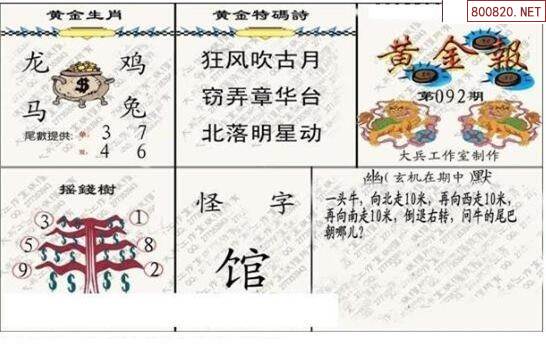 800820.NET
黄金生肖
龙 鸡
马 兔
尾數提供: 单: 3 7
双: 4 6
黄金特碼詩
狂风吹古月
窃弄章华台
北落明星动
黄金報
第092期
大兵工作室制作
摇錢樹
3 1
5 8
9 2
怪 字
馆
幽(玄机在期中)默
一头牛，向北走10米，再向西走10米，
再向南走10米，倒退右转，问牛的尾巴
朝哪儿？